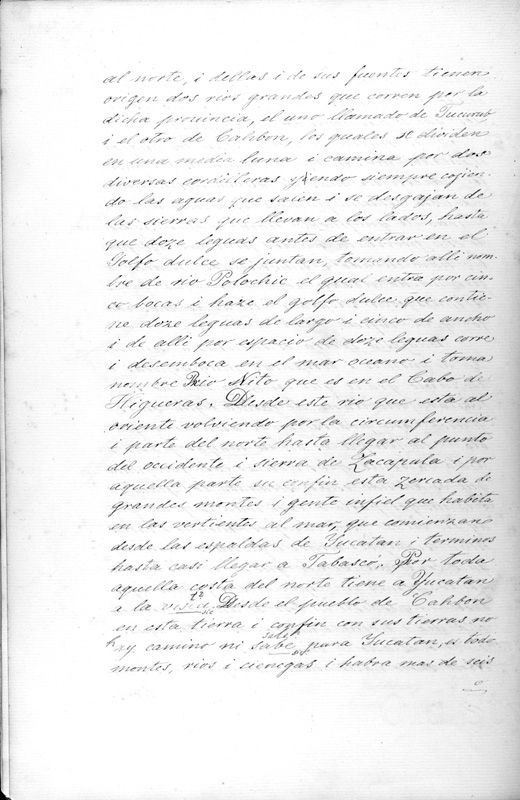 al norte, i dellas i de sus fuentes tienen
origen dos rios grandes que corren por la
dicha prouincia, el uno llamado de Tucurub
i el otro de Cahbon, los quales se dividen
en una media luna i camina por dos
diversas cordilleras yendo siempre cojien-
do las aguas que salen i se desgajan de
las sierras que llevan a los lados, hasta
que doze leguas antes de entrar en el
Golfo dulce se juntan, tomando alli nom-
bre de rio Polochic el qual entra por cin-
co bocas i haze el golfo dulce que contie-
ne doze leguas de largo i cinco de ancho
i de alli por espacio de doze leguas corre
i desemboca en el mar oceano i toma
nombre Rio Nito que es en el Cabo de
Higueras. Desde este rio que esta al
oriente volviendo por la circumferencia
i parte del norte hasta llegar al punto
del occidente i sierra de Zacapula i por
aquella parte su confin esta zercada de
grandes montes i gente infiel que habita
en las vertientes al mar, que comienzan
desde las espaldas de Yucatan i terminos
hasta casi llegar a Tabasco. Por toda
aquella costa del norte tiene a Yucatan
a la vista. Desde el pueblo de Cahbon
en esta tierra i confin con sus tierras no
hay camino ni sabe para Yucatan, es todo
montes, rios i cienegas i habra mas de seis